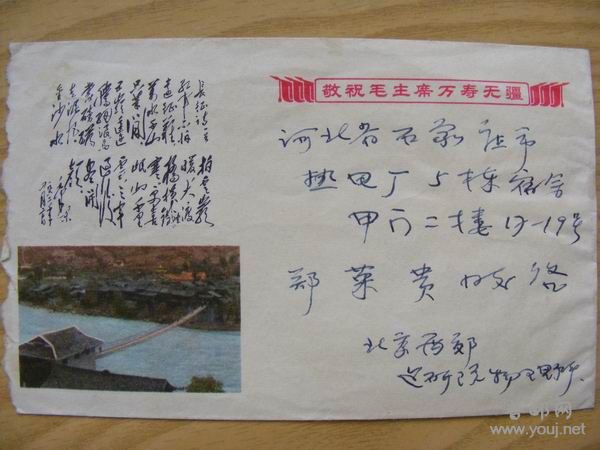 长征诗一首
红军不怕
远征难
万水千山
只等闲
五岭逶迤
腾细浪乌
蒙磅礴
走泥丸
金沙水
拍云崖
暖大渡
桥横铁索
寒更喜
岷山千里
雪三军
过后
尽开
颜
毛泽东
敬祝毛主席万寿无疆
河北省石家庄市
热电厂5栋宿舍
甲门二楼17-19号
郑莱贵
北京西郊
建研院物理所
古邮网
www.youj.net